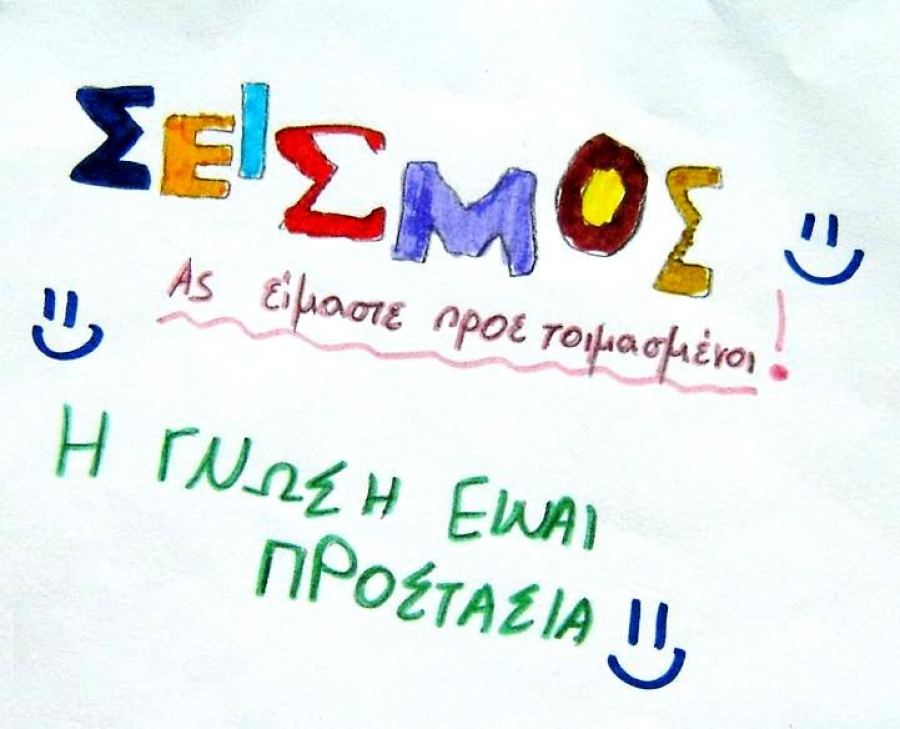 ΣΕΙΣΜΟΣ
Ας είμαστε προετοιμασμένοι!
Η ΓΝΩΣΗ ΕΙΝΑΙ
ΠΡΟΣΤΑΣΙΑ